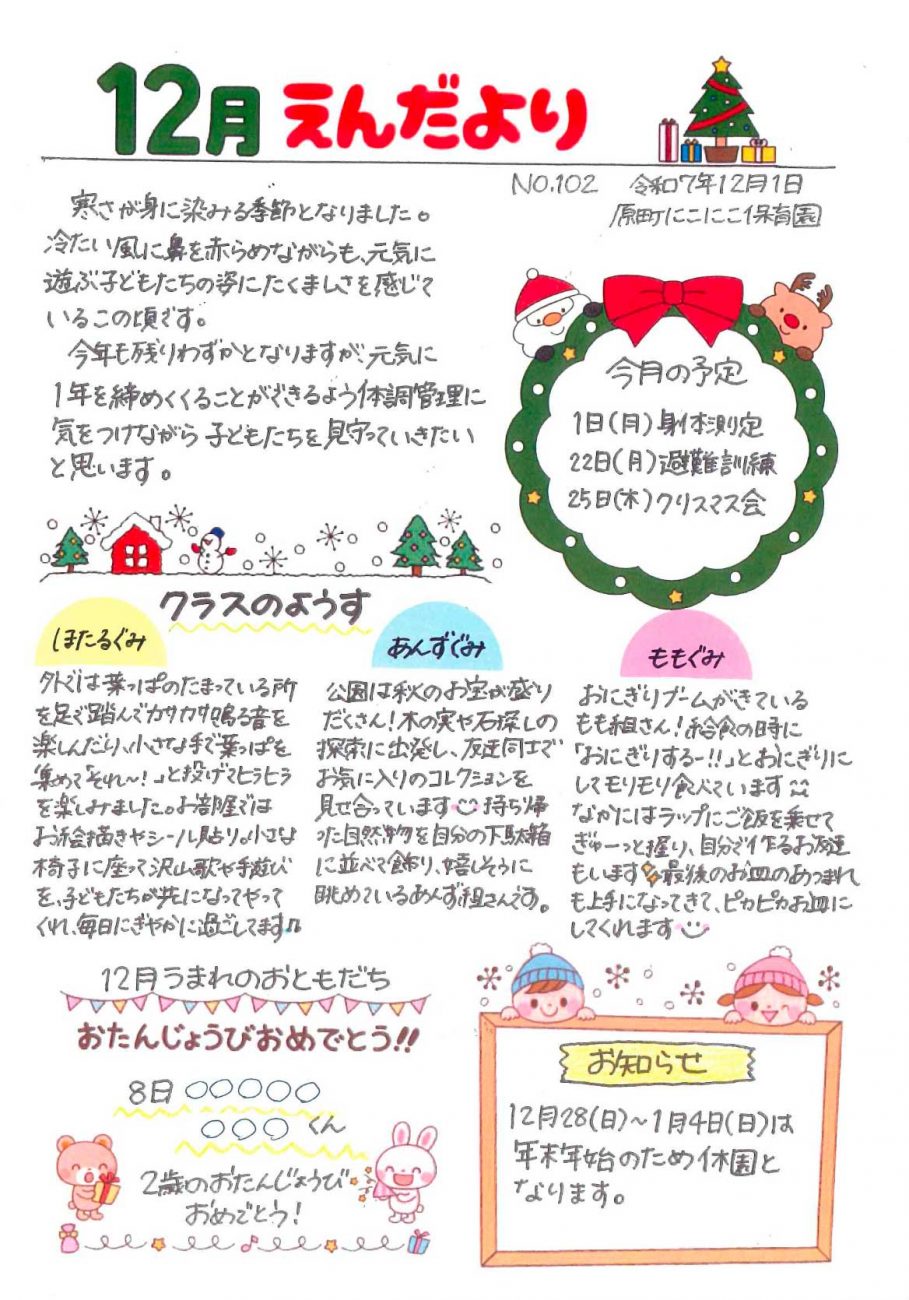 12月 えんだより
NO.102 令和7年12月1日
原町にこにこ保育園
寒さが身に染みる季節となりました。
冷たい風に鼻を赤らめながらも、元気に
遊ぶ子どもたちの姿にたくましさを感じて
いるこの頃です。
今年も残りわずかとなりますが、元気に
1年を締めくくることができるよう体調管理に
気をつけながら子どもたちを見守っていきたい
と思います。
今月の予定
1日(月)身体測定
22日(月)避難訓練
25日(木)クリスマス会
クラスのようす
ほたるぐみ
外では葉っぱのたまっている所
を足で踏んでカサカサ鳴る音を
楽しんだり、小さな手で葉っぱを
集めて「それ〜!」と投げてヒラヒラ
を楽しみました。お部屋では
お絵描きやシール貼り。小さな
椅子に座って沢山歌や手遊び
を、子どもたちが先になってやって
くれ、毎日にぎやかに過ごしてます♫
あんずぐみ
公園は秋のお宝が盛り
だくさん!木の実や石探しの
探索に出発し、友達同士で
お気に入りのコレクションを
見せ合っています 持ち帰
った自然物を自分の下駄箱
に並べて飾り、嬉しそうに
眺めているあんず組さんです。
ももぐみ
おにぎりブームがきている
もも組さん!給食の時に
「おにぎりするー!!」とおにぎりに
してモリモリ食べています
なかにはラップにご飯を乗せて
ぎゅーっと握り、自分で作るお友達
もいます 最後のお皿のあつまれ
も上手になってきて、ピカピカお皿に
してくれます
12月うまれのおともだち
おたんじょうびおめでとう!!
8日 ○○○○○
○○○くん
2歳のおたんじょうび
おめでとう!
お知らせ
12月28(日)〜1月4日(日)は
年末年始のため休園と
なります。